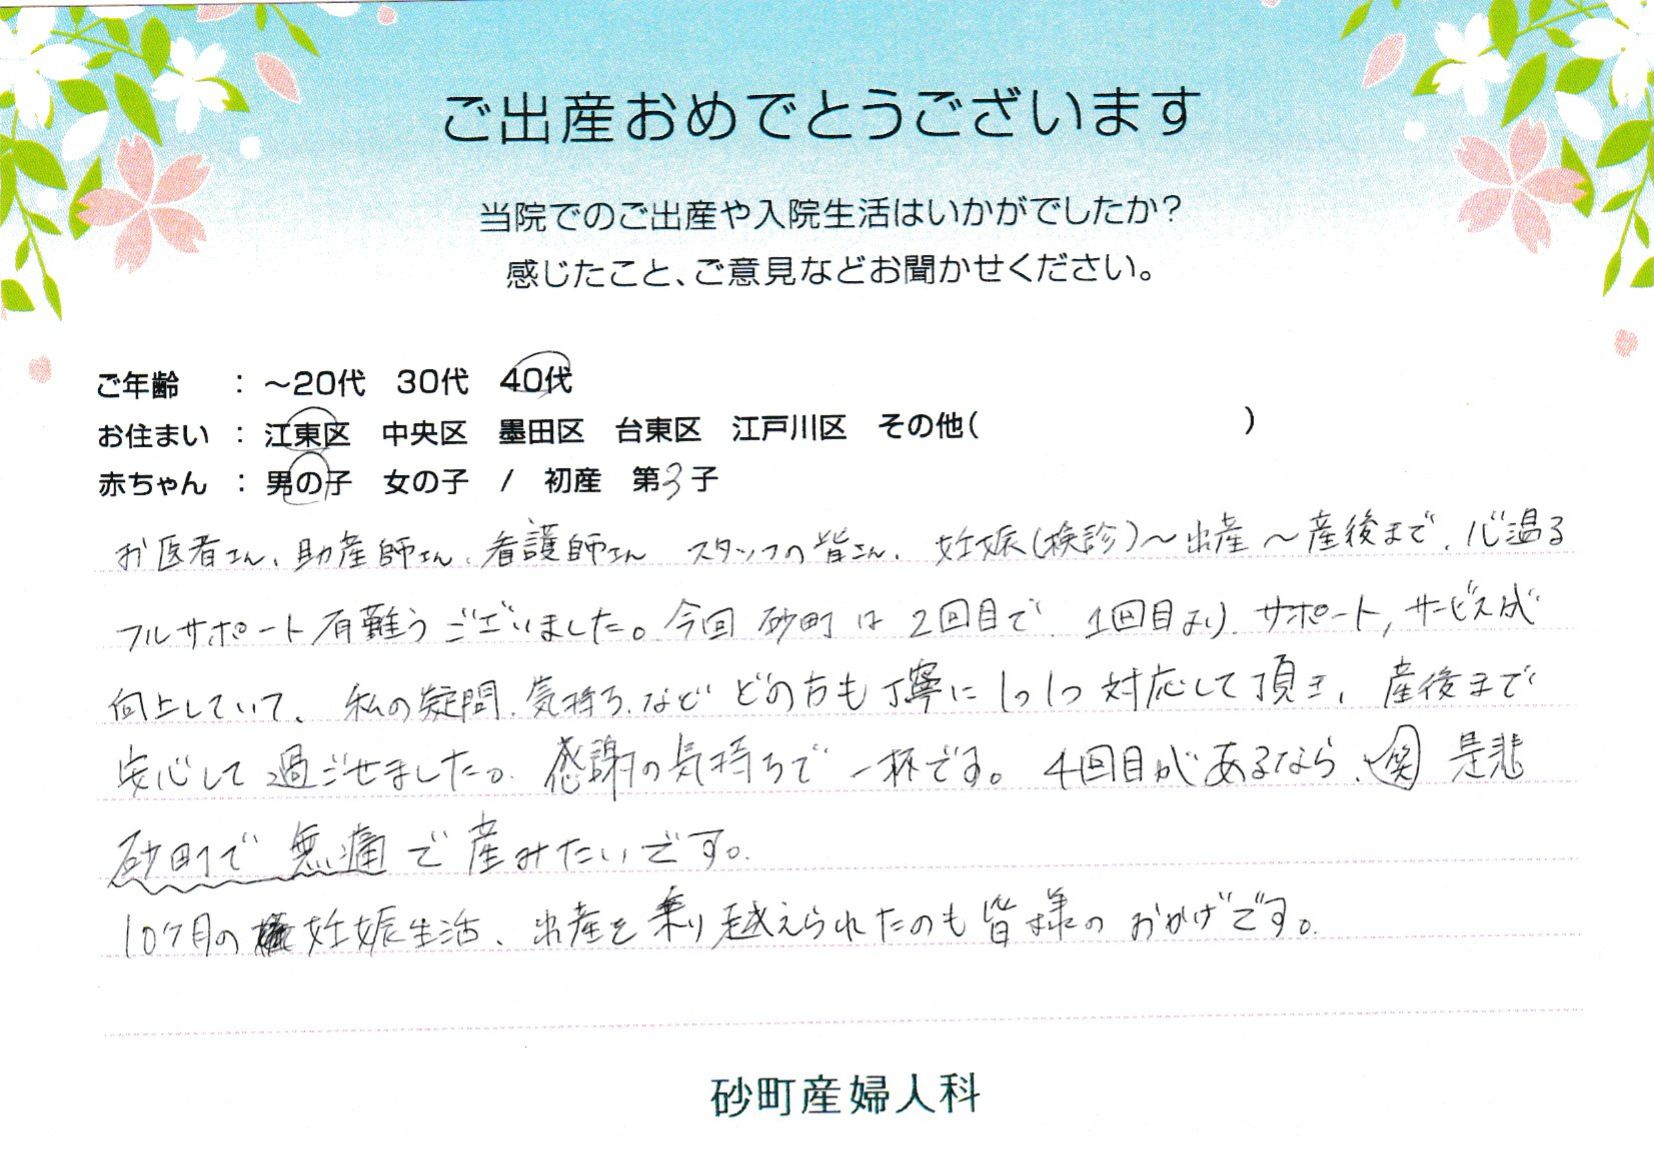 ご出産おめでとうございます
当院でのご出産や入院生活はいかがでしたか?
感じたこと、ご意見などお聞かせください。
ご年齢 : ～20代 30代 40代
お住まい : 江東区 中央区 墨田区 台東区 江戸川区 その他( )
赤ちゃん : 男の子 女の子 / 初産 第3子
お医者さん、助産師さん、看護師さん スタッフの皆さん、妊娠(検診)～出産～産後まで、心温る
フルサポート有難うございました。今回砂町は2回目で、1回目より、サポート,サービスが
向上していて、私の疑問、気持ち、などどの方も丁寧に1つ1つ対応して頂き、産後まで
安心して過ごせました。感謝の気持ちで一杯です。4回目があるなら、笑 是非
砂町で無痛で産みたいです。
10ヶ月の妊娠生活、出産を乗り越えられたのも皆様のおかげです。
砂町産婦人科